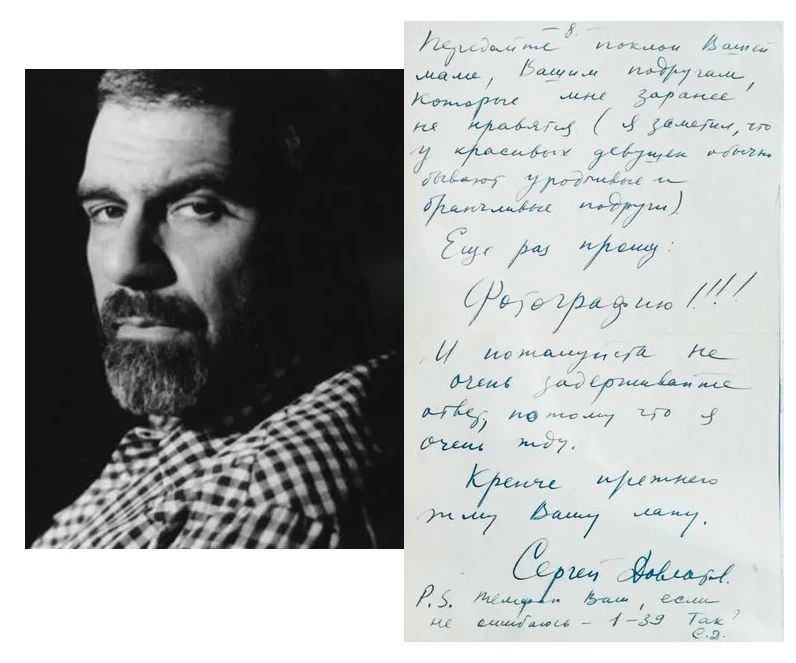 — 8. —
Передайте поклон Вашей
маме, Вашим подругам,
которые мне заранее
не нравятся (Я заметил, что
у красивых девушек обычно
бывают уродливые и
бранчливые подруги).
Еще раз прошу:
Фотографию!!!!
И пожалуйста не
очень задерживайте
ответ, потому что я
очень жду.
Крепче прежнего
жму Вашу лапу.
Сергей Довлатов.
P.S. телефон Ваш, если
не ошибаюсь – 1–39 Так?
С.Д.